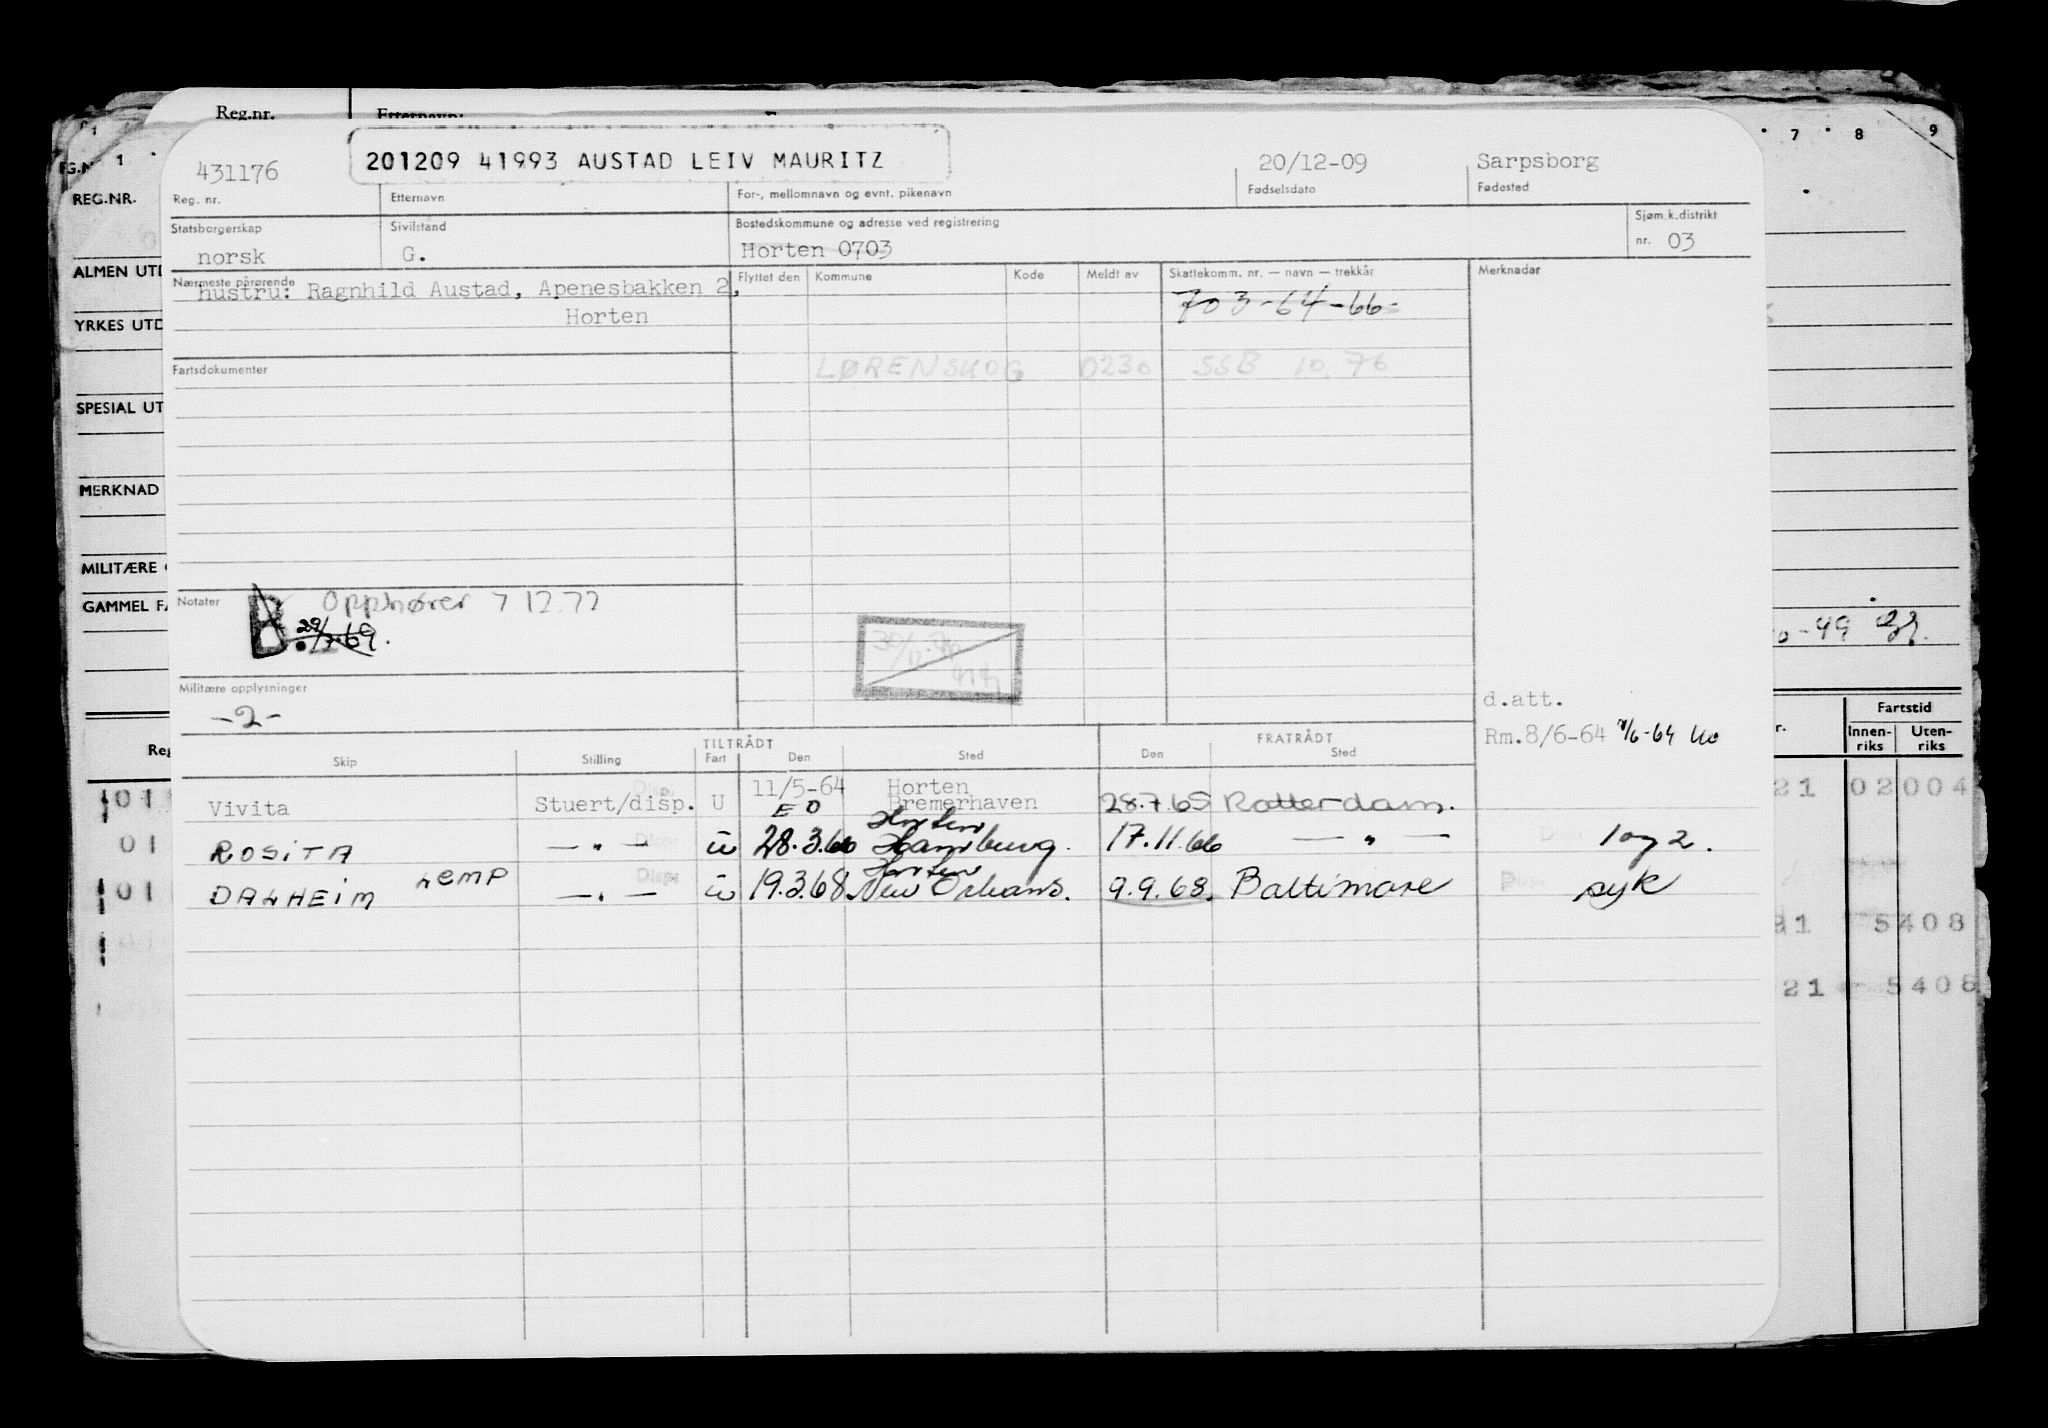 Reg.nr.
431176 201209 41993 AUSTAD LEIV MAURITZ 20/12-09 Sarpsborg
Reg. nr. Etternavn For-, mellomnavn og evnt. pikenavn Fødselsdato Fødested
Statsborgerskap Sivilstand Bostedskommune og adresse ved registrering Sjøm.k.distrikt
norsk G. Horten 0703 nr. 03
Nærmeste pårørende Flyttet den Kommune Kode Meldt av Skattekomm. nr. — navn — trekkår Merknadar
hustru: Ragnhild Austad, Apenesbakken 2,
Horten
703-64-66
Fartsdokumenter LØRENSKOG 0230 SSB 10.76
Notater Opphører 7 12.77
B. 29/7-69.
Militære opplysninger
-2-
d.att.
Rm.8/6-64
TILTRÅDT FRATRÅDT
Skip Stilling Fart Den Sted Den Sted
Vivita Stuert/disp. U 11/5-64 Horten
E O Bremerhaven 28.7.65 Rotterdam.
Horten
ROSITA — " — u 28.3.66 Hamburg. 17.11.66 — " — 1 og 2.
Horten
DALHEIM LEMP — " — u 19.3.68. New Orleans. 9.9.68. Baltimore syk
REG.NR.
ALMEN UTD
YRKES UTD
SPESIAL UT
MERKNAD
MILITÆRE
GAMMEL FA
Reg
01
01
01
1
7 8 9
-49
Fartstid
Innen-riks Uten-riks
21 02004
5408
21 5408